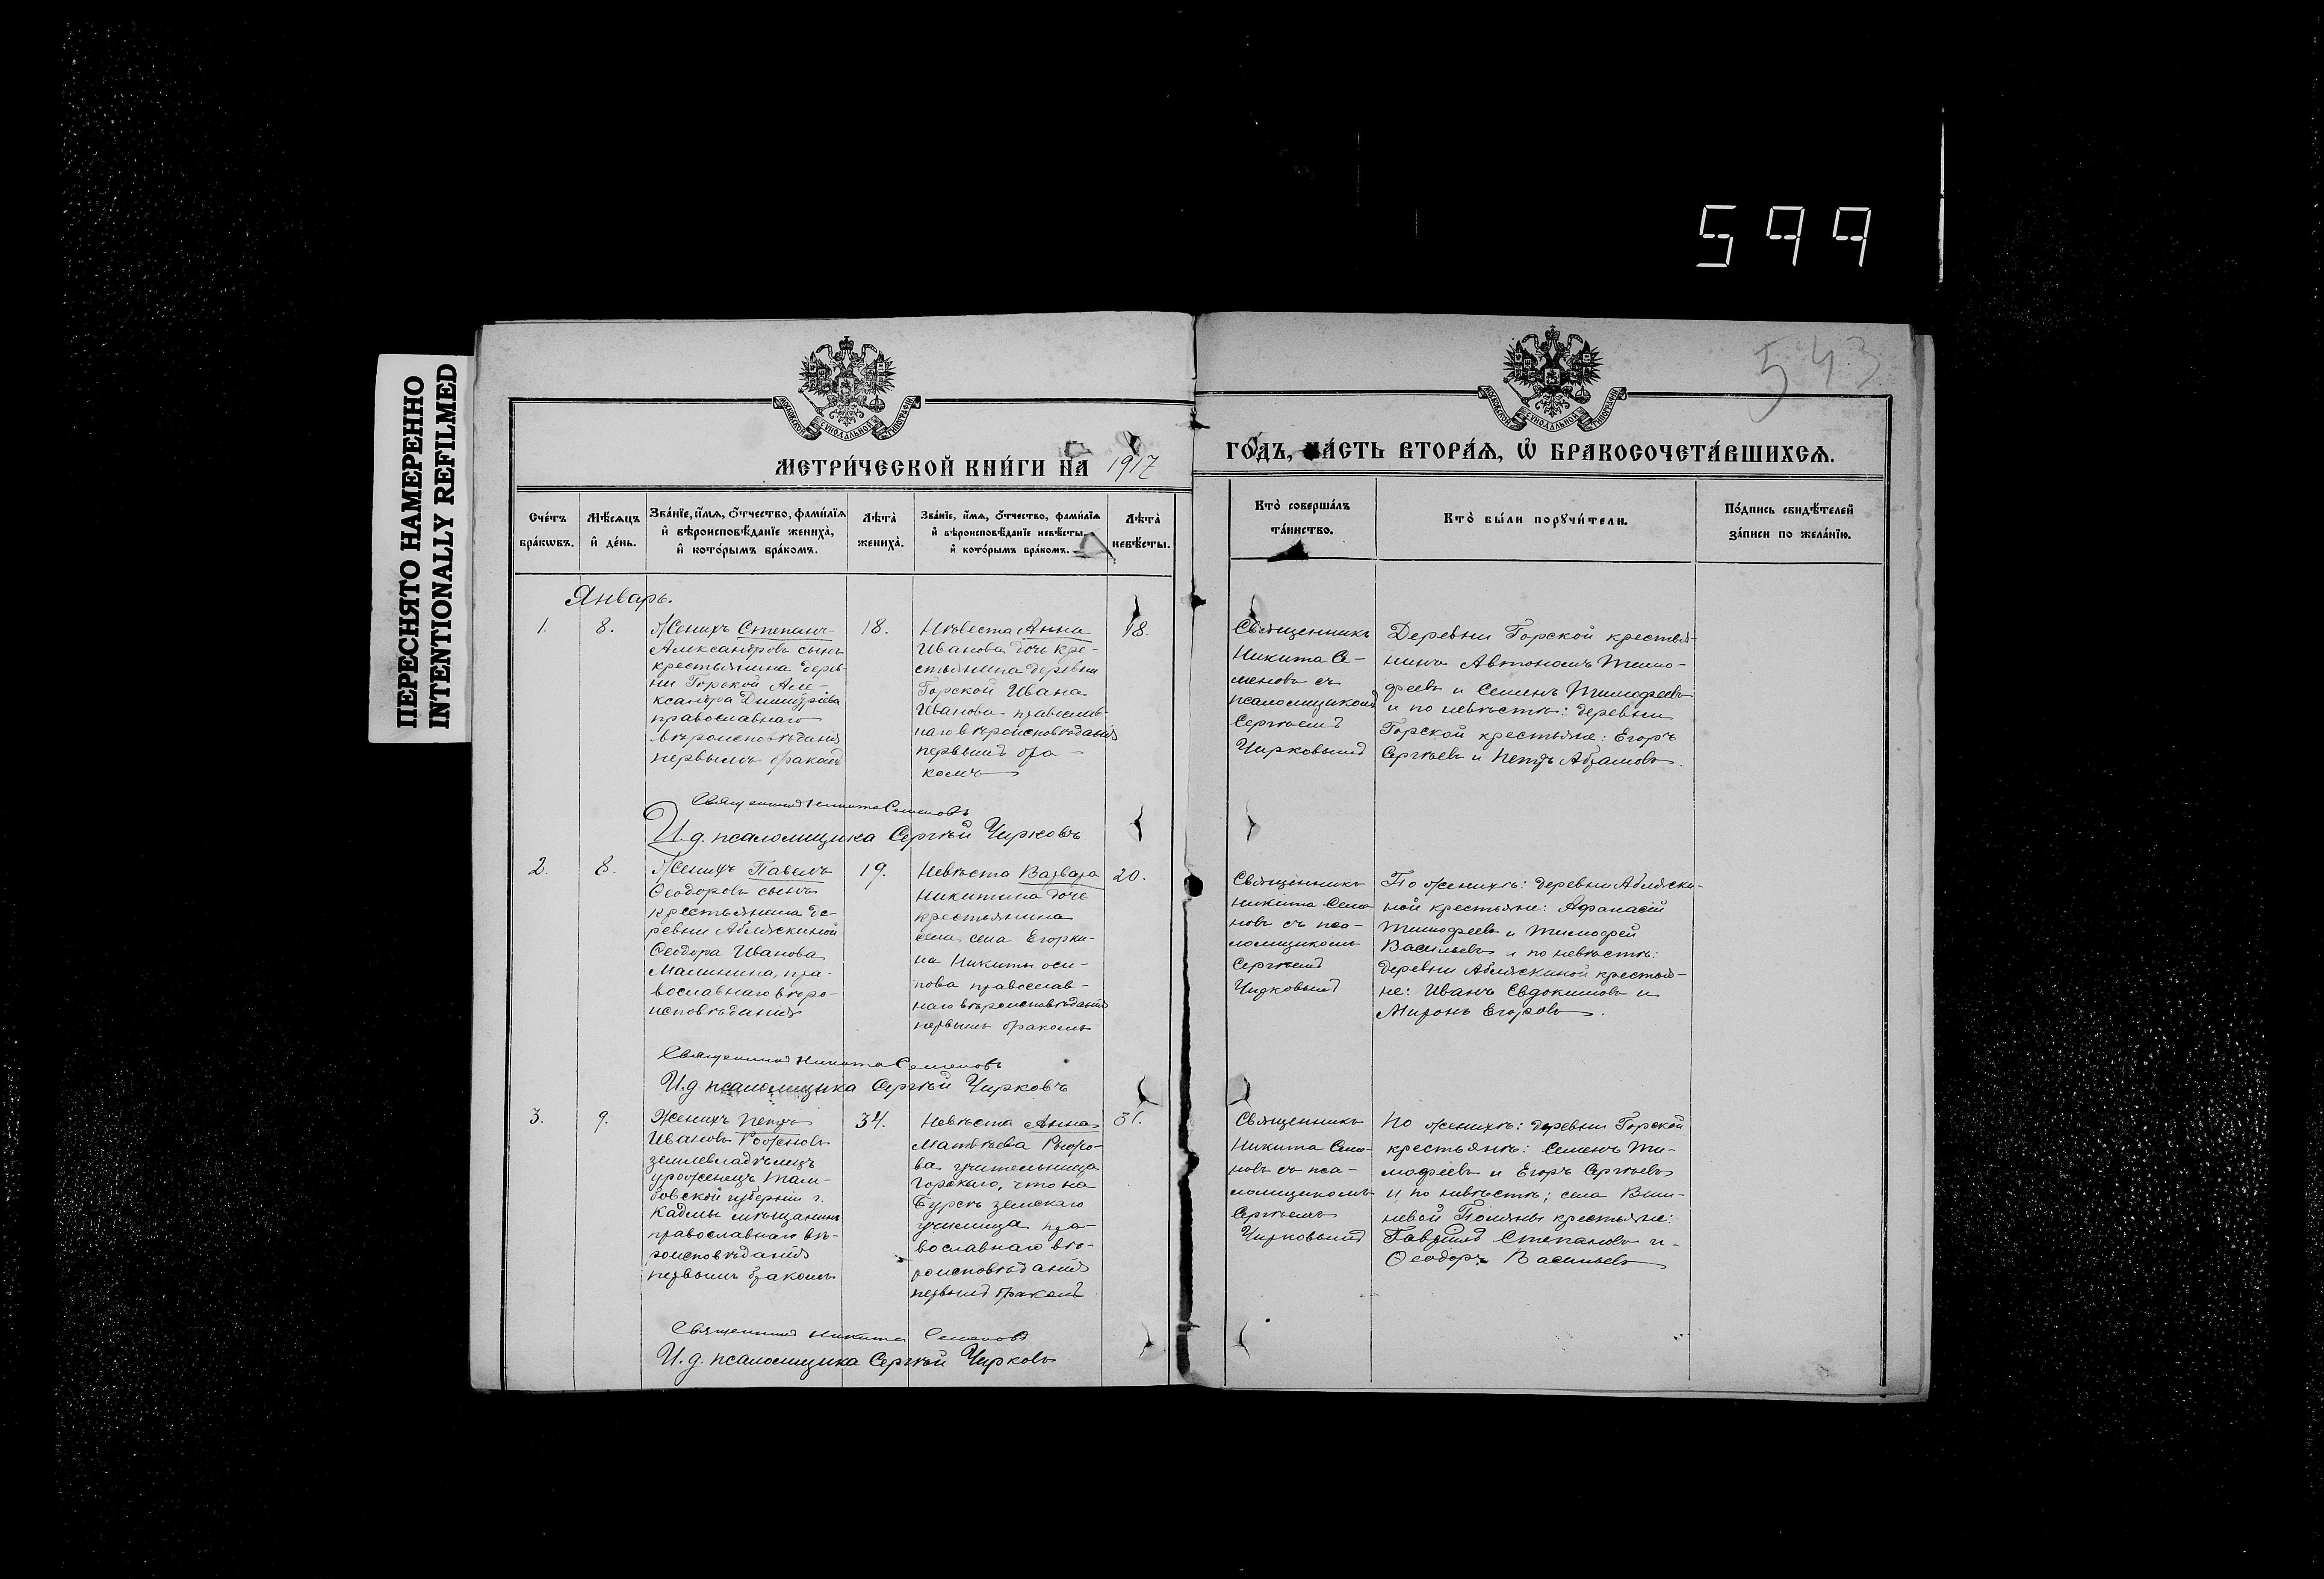 599
ПЕРЕСНЯТО НАМЕРЕННО
INTENTIONALLY REFILMED
543
МОСКОВСКОЙ СѴНОДАЛЬНОЙ ТИПОГРАФІИ
МОСКОВСКОЙ СѴНОДАЛЬНОЙ ТИПОГРАФІИ
МЕТРИ́ЧЕСКОЙ КНИ́ГИ НА 1917
ГО́ДЪ, ЧА́СТЬ ВТОРА́Ѧ, Ѡ҆ БРАКОСОЧЕТА́ВШИХСѦ.
Сче́тъ
бра́кѡвъ.
Мѣ́сѧцъ
и҆ де́нь.
Зва́нїе, и҆́мѧ, ѻ҆́тчество, фами́лїѧ
и҆ вѣроисповѣ́данїе жениха̀,
и҆ кото́рымъ бра́комъ.
Лѣта̀
жениха̀.
Зва́нїе, и҆́мѧ, ѻ҆́тчество, фами́лїѧ
и҆ вѣроисповѣ́данїе невѣ́сты,
и҆ кото́рымъ бра́комъ.
Лѣта̀
невѣ́сты.
Кто̀ соверша́лъ
та́инство.
Кто̀ бы́ли порꙋчи́тели.
По́дпись свидѣ́телей
за́писи по жела́нїю.
Январь.
1.
8.
Женихъ Степанъ
Александровъ сынъ
крестьянина дерев-
ни Горской Але-
ксандра Димитріева
православнаго
вѣроисповѣданія
первымъ бракомъ
18.
Невеста Анна
Иванова дочь кре-
стьянина деревни
Горской Ивана
Иванова православ-
наго вѣроисповѣданія
первымъ бра-
комъ
18.
Священникъ
Никита Се-
меновъ съ
псаломщикомъ
Сергѣемъ
Чирковымъ
Деревни Горской крестья-
нинъ Автономъ Тимо-
феевъ и Семенъ Тимофеевъ
и по невѣсте: деревни
Горской крестьяне: Егоръ
Сергѣевъ и Петръ Абрамовъ.
Священникъ Никита Семеновъ
И.д. псаломщика Сергѣй Чирковъ
2.
8.
Женихъ Павелъ
Ѳеодоровъ сынъ
крестьянина де-
ревни Абляскиной
Ѳеодора Иванова
Малинина, пра-
вославнаго вѣро-
исповѣданія
19.
Невѣста Варвара
Никитина дочь
крестьянина
села Егорки-
на Никиты Оси-
пова православ-
наго вѣроисповѣданія
первымъ бракомъ
20.
Священникъ
Никита Семе-
новъ съ пса-
ломщикомъ
Сергѣемъ
Чирковымъ
По женихѣ: деревни Абляски-
ной крестьяне: Афанасій
Тимофеевъ и Тимофей
Васильевъ и по невѣстѣ:
деревни Абляскиной крестья-
не: Иванъ Евдокимовъ и
Миронъ Егоровъ.
Священникъ Никита Семеновъ
И.д. псаломщика Сергѣй Чирковъ
3.
9.
Женихъ Петръ
Ивановъ Роженовъ
землевладѣлецъ
уроженецъ Там-
бовской губерніи г.
Кадмы мѣщанинъ
православнаго вѣ-
роисповѣданія
первымъ бракомъ
34.
Невѣста Анна
Матвѣева Рыжо-
ва учительница
Горскаго, что на
Бурсѣ земскаго
училища пра-
вославнаго вѣ-
роисповѣданія
первымъ бракомъ
31.
Священникъ
Никита Семе-
новъ съ пса-
ломщикомъ
Сергѣемъ
Чирковымъ
По женихѣ: деревни Горской
крестьянѣ: Семенъ Ти-
мофеевъ и Егоръ Сергѣевъ
и по невѣстѣ; села Виш-
невой Поляны крестьяне:
Гавріилъ Степановъ и
Ѳеодоръ Васильевъ
Священникъ Никита Семеновъ
И.д. псаломщика Сергѣй Чирковъ